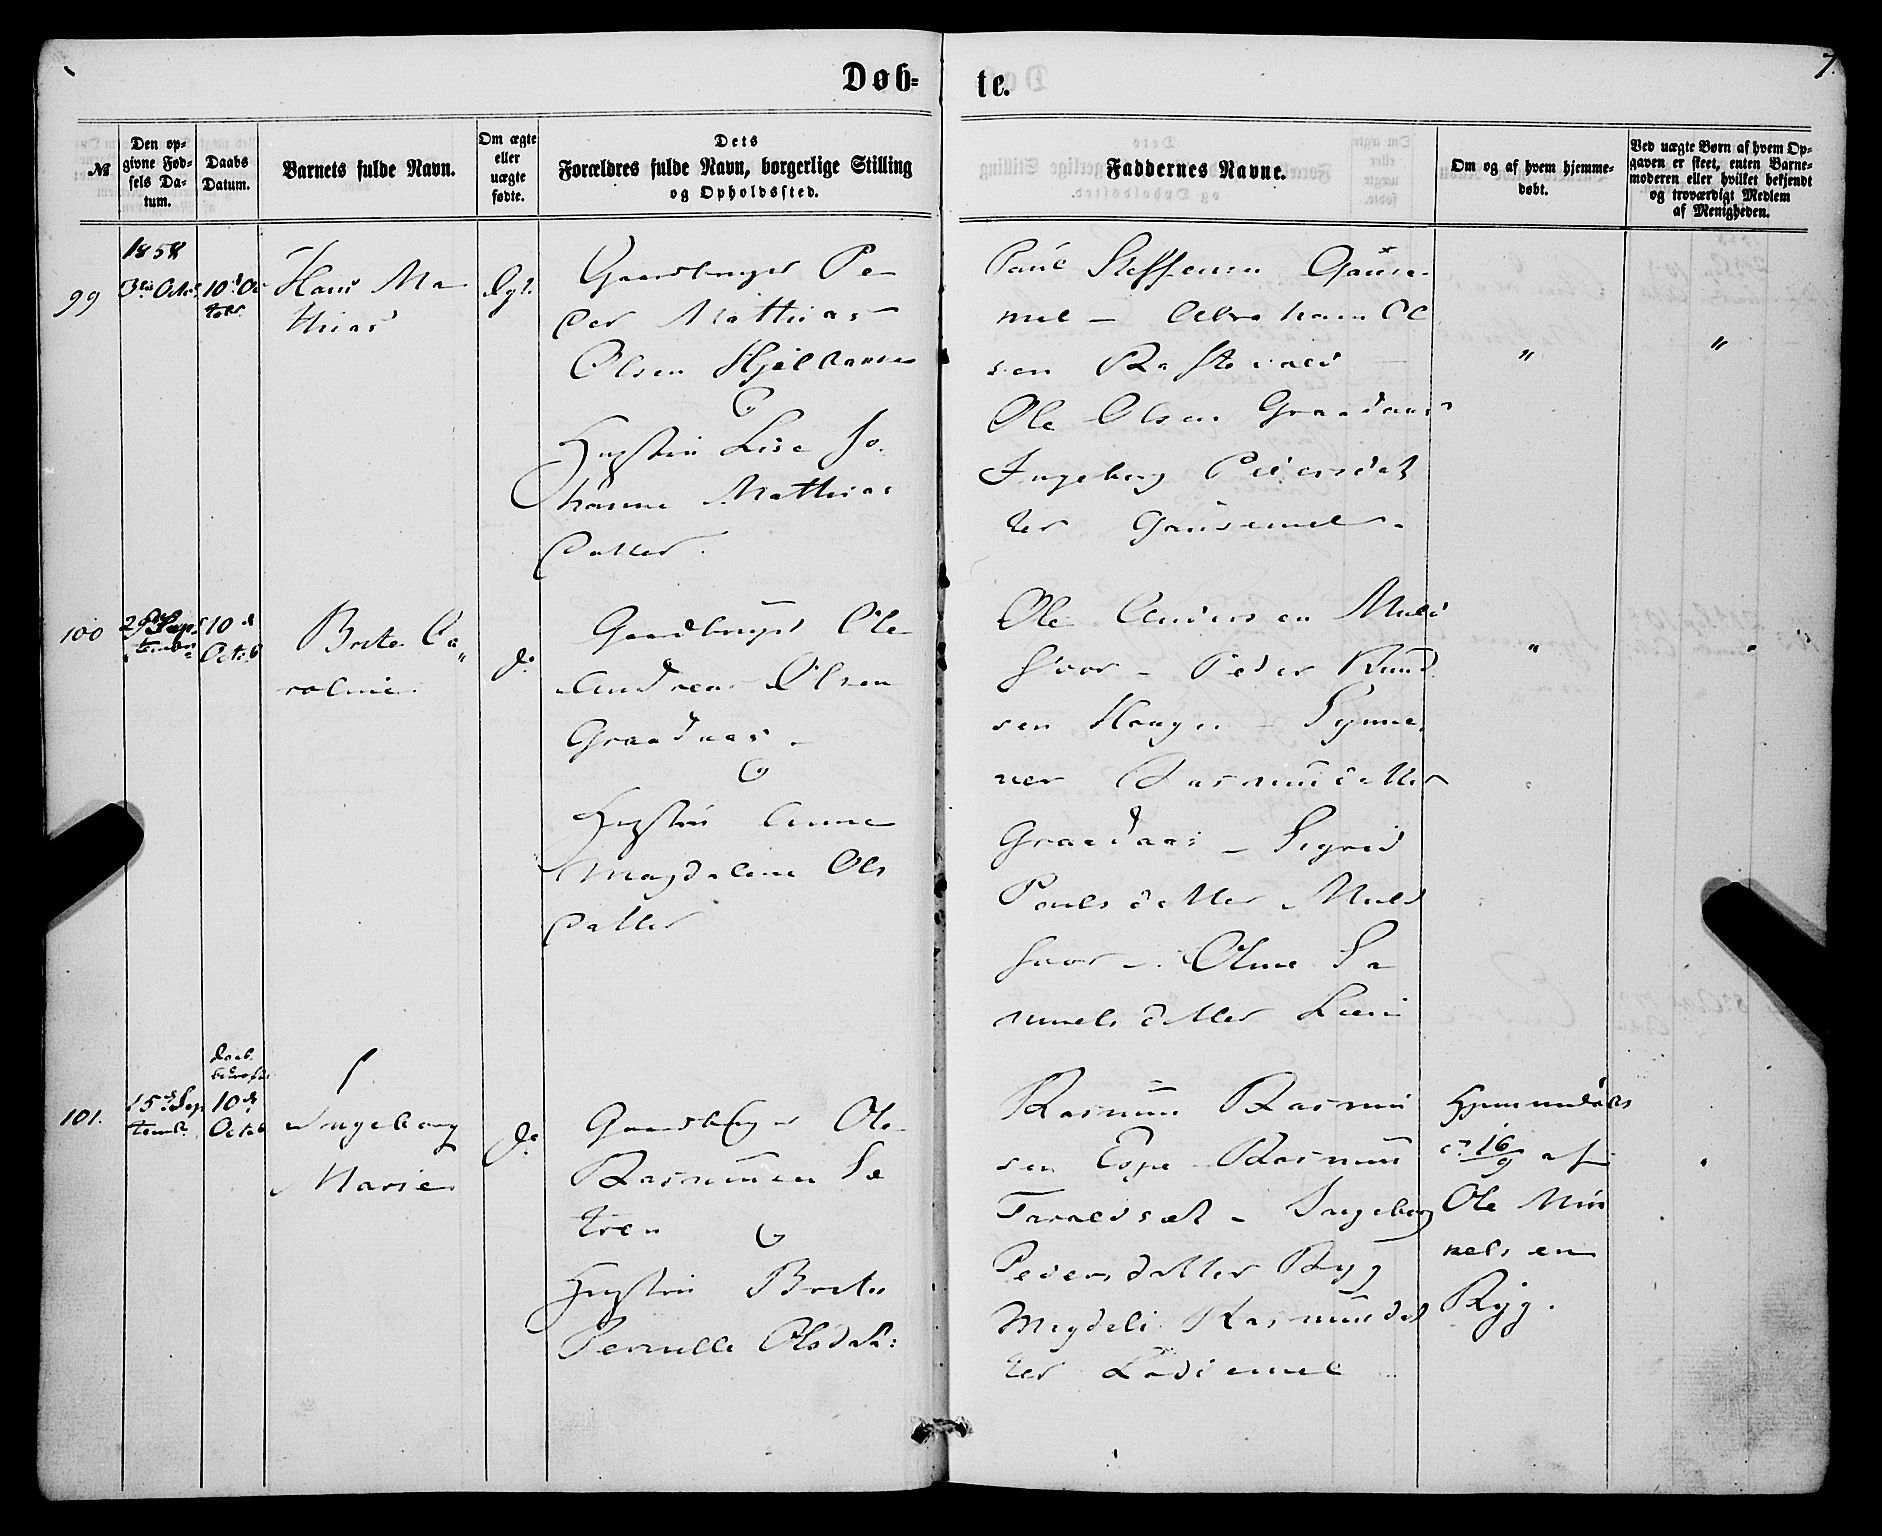 Døb-
te.
7.
№
Den op-
givne Fød-
sels Da-
tum.
Daabs
Datum.
Barnets fulde Navn.
Om ægte
eller
uægte
fødte.
Dets
Forældres fulde Navn, borgerlige Stilling
og Opholdssted.
Faddernes Navne.
Om og af hvem hjemme-
døbt.
Ved uægte Børn af hvem Op-
gaven er skeet, enten Barne-
moderen eller hvilket bekjendt
og troværdigt Medlem
af Menigheden.
1858
99
10d Oc
tobr.
Hans Ma-
thias
Ægt.
Gaardbruger Pe-
der Mathias
Olsen
&
Hustru Lise Jo-
hanne Mathias
Datter.
Paul Steffensen Gause-
mel - Abraham Ol
sen
Ole Olsen Graadaas
Ingeborg Pedersdat
ter Gausemel -
"
"
100
29de Sep
tember
10d
Octob
Brite Ca"
roline
do
Gaardbruger Ole
Andreas Olsen
Graadaas -
&
Hustru Anne
Magdalene Ols
Datter
Ole Andersen Muld
svor - Peder Knud
sen Haugen - Synne
ver Rasmusdatter
Graadaas - Sigrid
Paulsdatter Muld
svor - Oline Sa
muelsdatter
"
"
101.
15d Sep
tembr
Daab
10d
Octob
Ingeborg
Marie
do
Gaardbruger Ole
Rasmussen Sæ
tren &
Hustru Brite
Pernille Olsdatt:
Rasmus Rasmus
sen Espe Rasmus
Taraldsæt - Ingeborg
Pedersdatter Ryg
Magdeli Rasmusdat
ter
Hjemmedøbt
d. 16/9 af
Ole Mik
kelsen
Ryg.